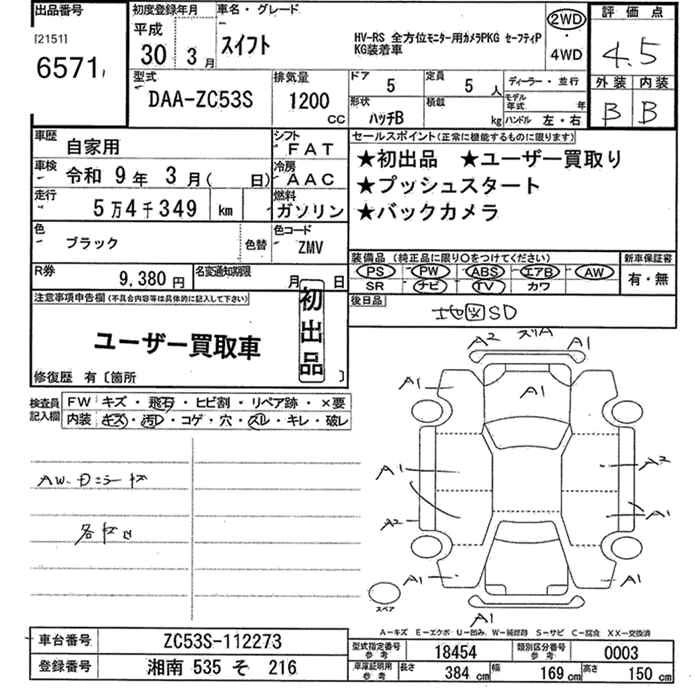 出品番号
[2151]
6571
初度登録年月
平成
30年3月
車名・グレード
スイフト
HV-RS 全方位モニター用カメラPKG セーフティP
KG装着車
2WD
・
4WD
評価点
4.5
外装 内装
B B
型式
DAA-ZC53S
排気量
1200
CC
ドア
5
定員
5人
ディーラー・並行
形状
ハッチB
積載
kg
モデル年式
年
ハンドル 左・右
車歴
自家用
シフト
FAT
車検
令和 9年 3月( 日)
冷房
AAC
走行
5万4千349 km
燃料
ガソリン
色
ブラック
色替
色コード
ZMV
R券
9,380円
名変通知期限
月 日
セールスポイント(正常に機能するものに限ります)
★初出品 ★ユーザー買取り
★プッシュスタート
★バックカメラ
装備品 (純正品に限り○をつけてください)
PS PW ABS エアB AW
SR ナビ TV カワ
新車保証書
有・無
後日品
地図SD
注意事項申告欄(不具合内容等は具体的に記入して下さい)
初出品
ユーザー買取車
修復歴 有〔箇所 〕
検査員
記入欄
FW キズ・飛石・ヒビ割・リペア跡・×要
内装 キズ・汚レ・コゲ・穴・スレ・キレ・破レ
A2 スリA A1
A1 A1 A1
A1 A2
A2 A1
A1 A1
スペア
A1
A−キズ E−エクボ U−凹み W−補修跡 S−サビ C−腐食 XX−交換済
車台番号 ZC53S-112273
登録番号 湘南 535 そ 216
型式指定番号
参考
18454
類別区分番号
参考
0003
車庫証明用
参考
長さ 384cm 幅 169cm 高さ 150cm